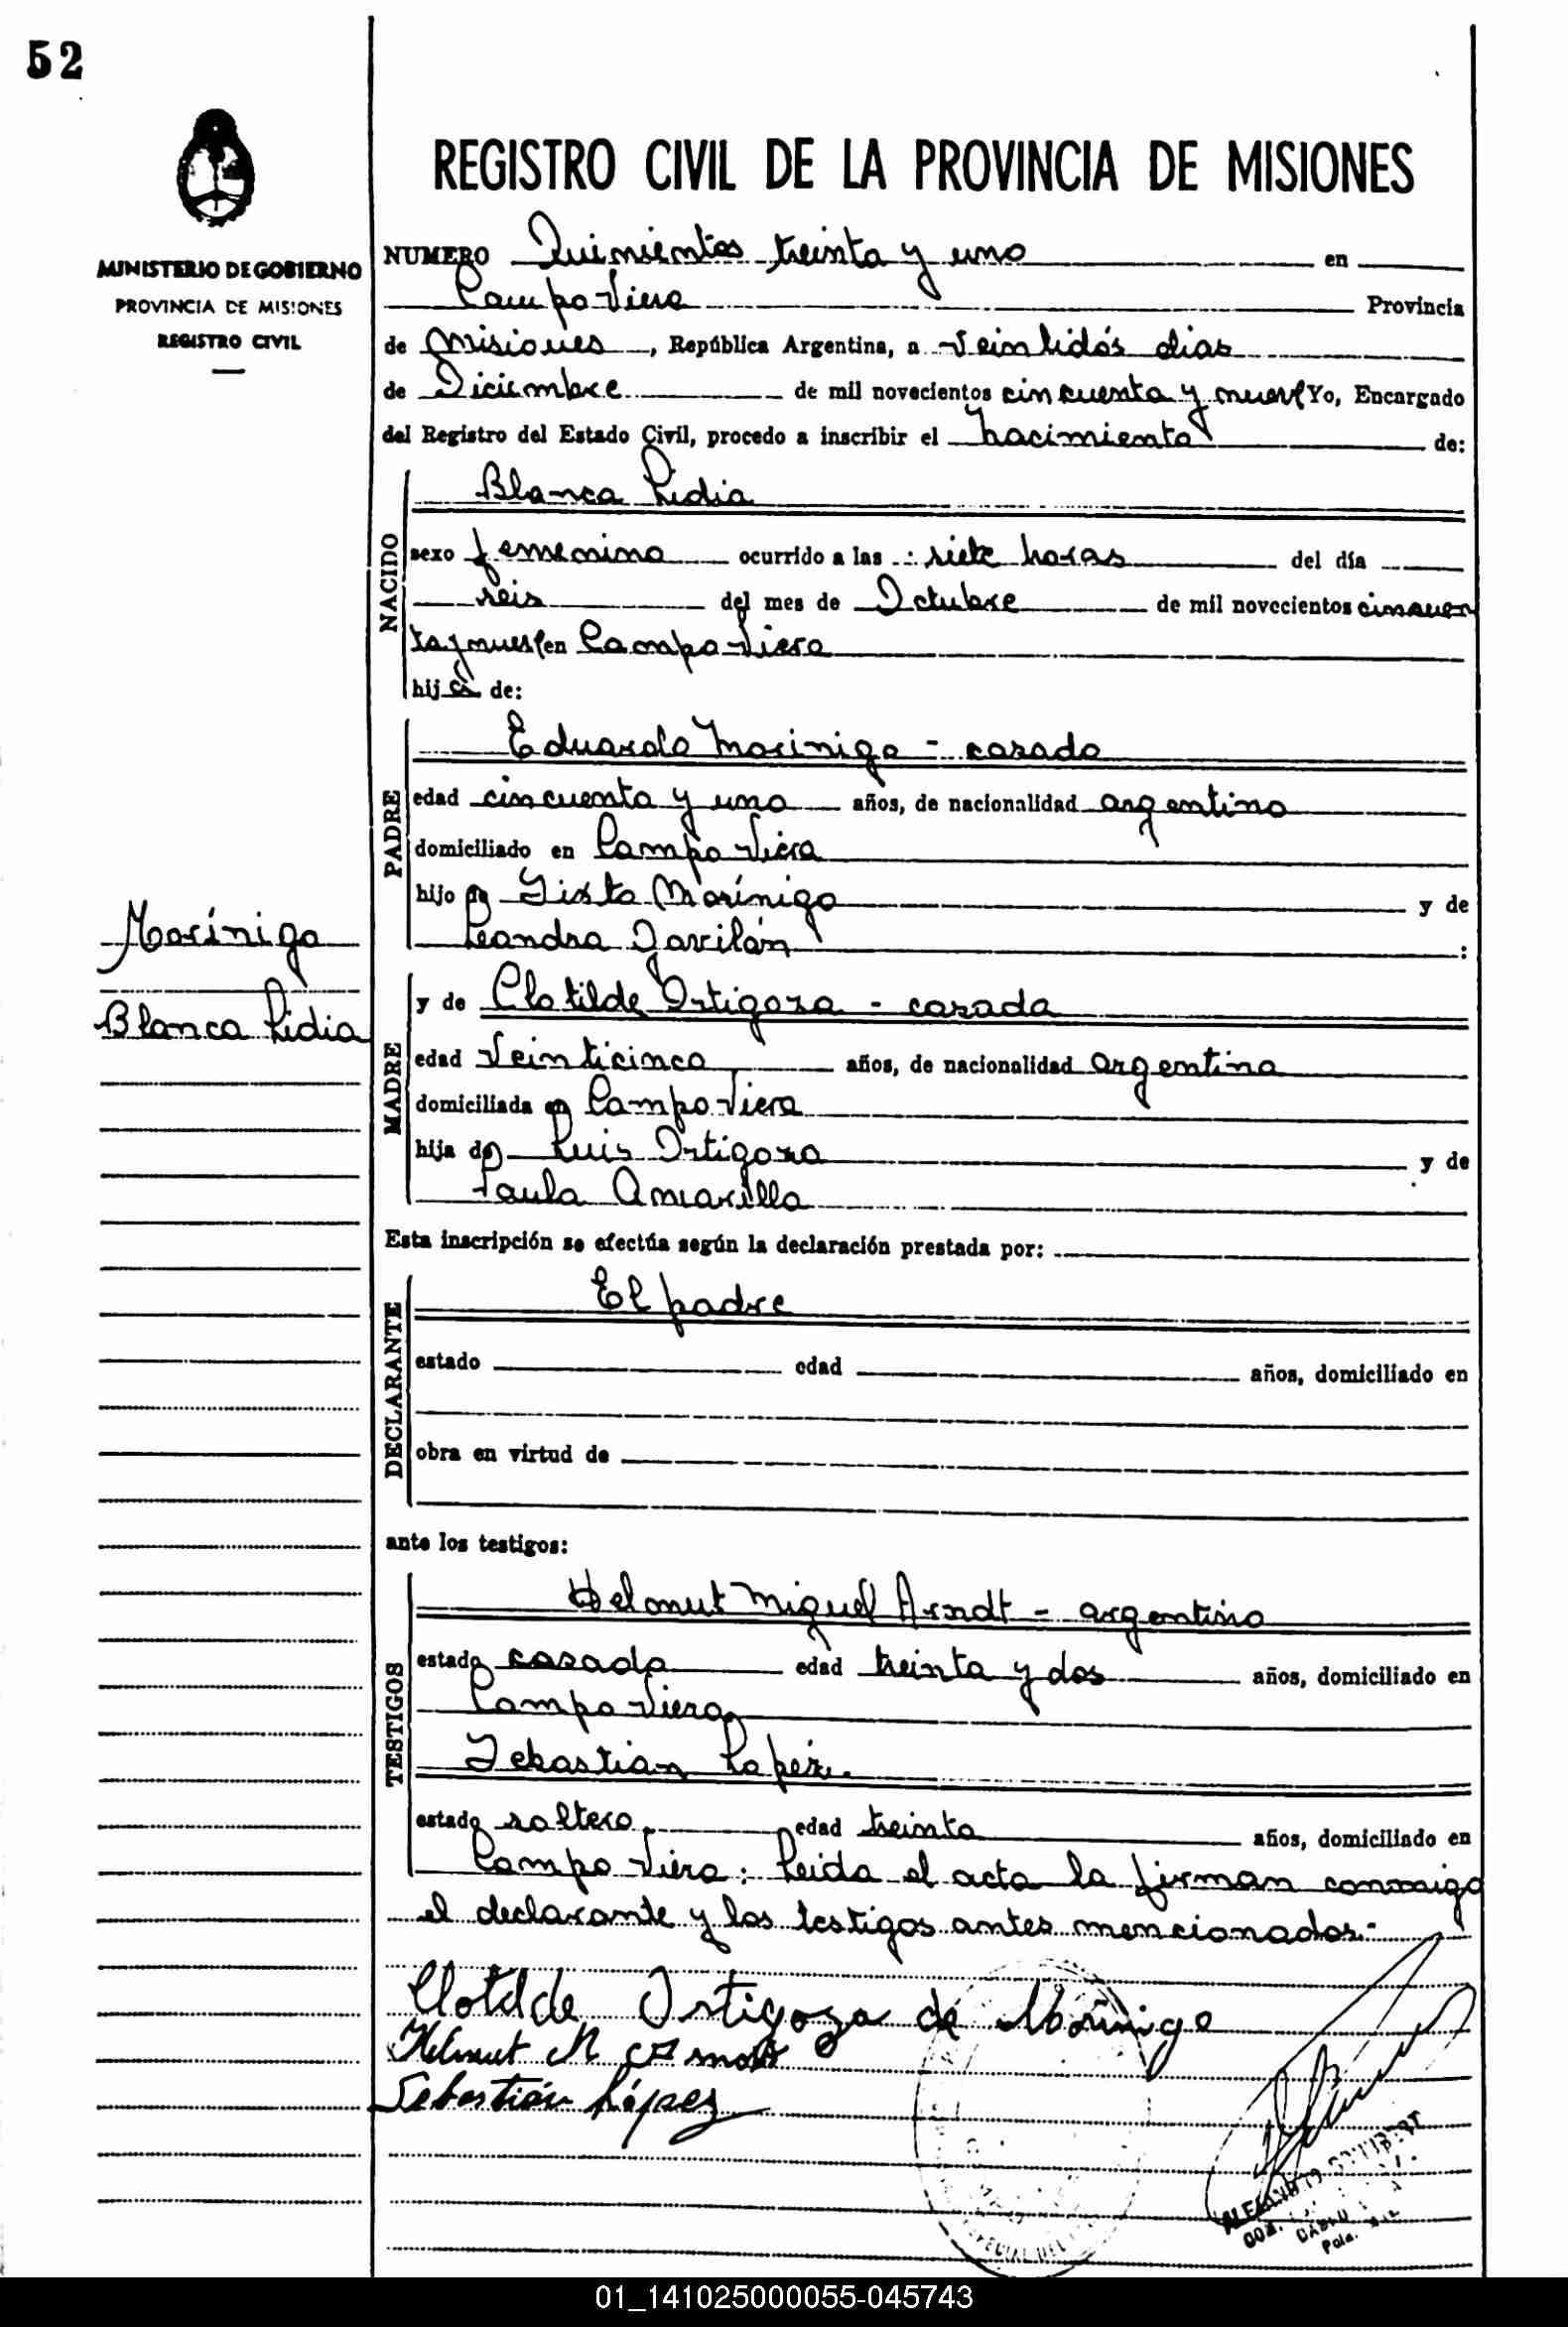 52
REGISTRO CIVIL DE LA PROVINCIA DE MISIONES
MINISTERIO DE GOBIERNO
PROVINCIA DE MISIONES
REGISTRO CIVIL
NUMERO Quinientos treinta y uno en
Campo Viera Provincia
de Misiones, República Argentina, a Veintidós dias
de Diciembre de mil novecientos cincuenta y nueve Yo, Encargado
del Registro del Estado Civil, procedo a inscribir el Nacimiento de:
NACIDO
Blanca Lidia
sexo femenino ocurrido a las siete horas del día
seis del mes de Octubre de mil novecientos cincuen
ta y nueve en Campo Viera
hija de:
PADRE
Eduardo Morinigo - casado
edad cincuenta y uno años, de nacionalidad argentino
domiciliado en Campo Viera
hijo de Sixto Morínigo y de
Leandra Gavilán :
Morínigo
Blanca Lidia
MADRE
y de Clotilde Ortigoza - casada
edad Veinticinco años, de nacionalidad argentina
domiciliada en Campo Viera
hija de Luis Ortigoza y de
Paula Amarilla
Esta inscripción se efectúa según la declaración prestada por:
DECLARANTE
El padre
estado edad años, domiciliado en
obra en virtud de
ante los testigos:
TESTIGOS
Helmut Miguel Arndt - argentino
estado casado edad treinta y dos años, domiciliado en
Campo Viera
Sebastian Lopéz.
estado soltero edad treinta años, domiciliado en
Campo Viera: Leida el acta la firman conmigo
el declarante y los testigos antes mencionados.-
Clotilde Ortigoza de Moriñigo
Helmut M
Sebastián López
01_141025000055-045743